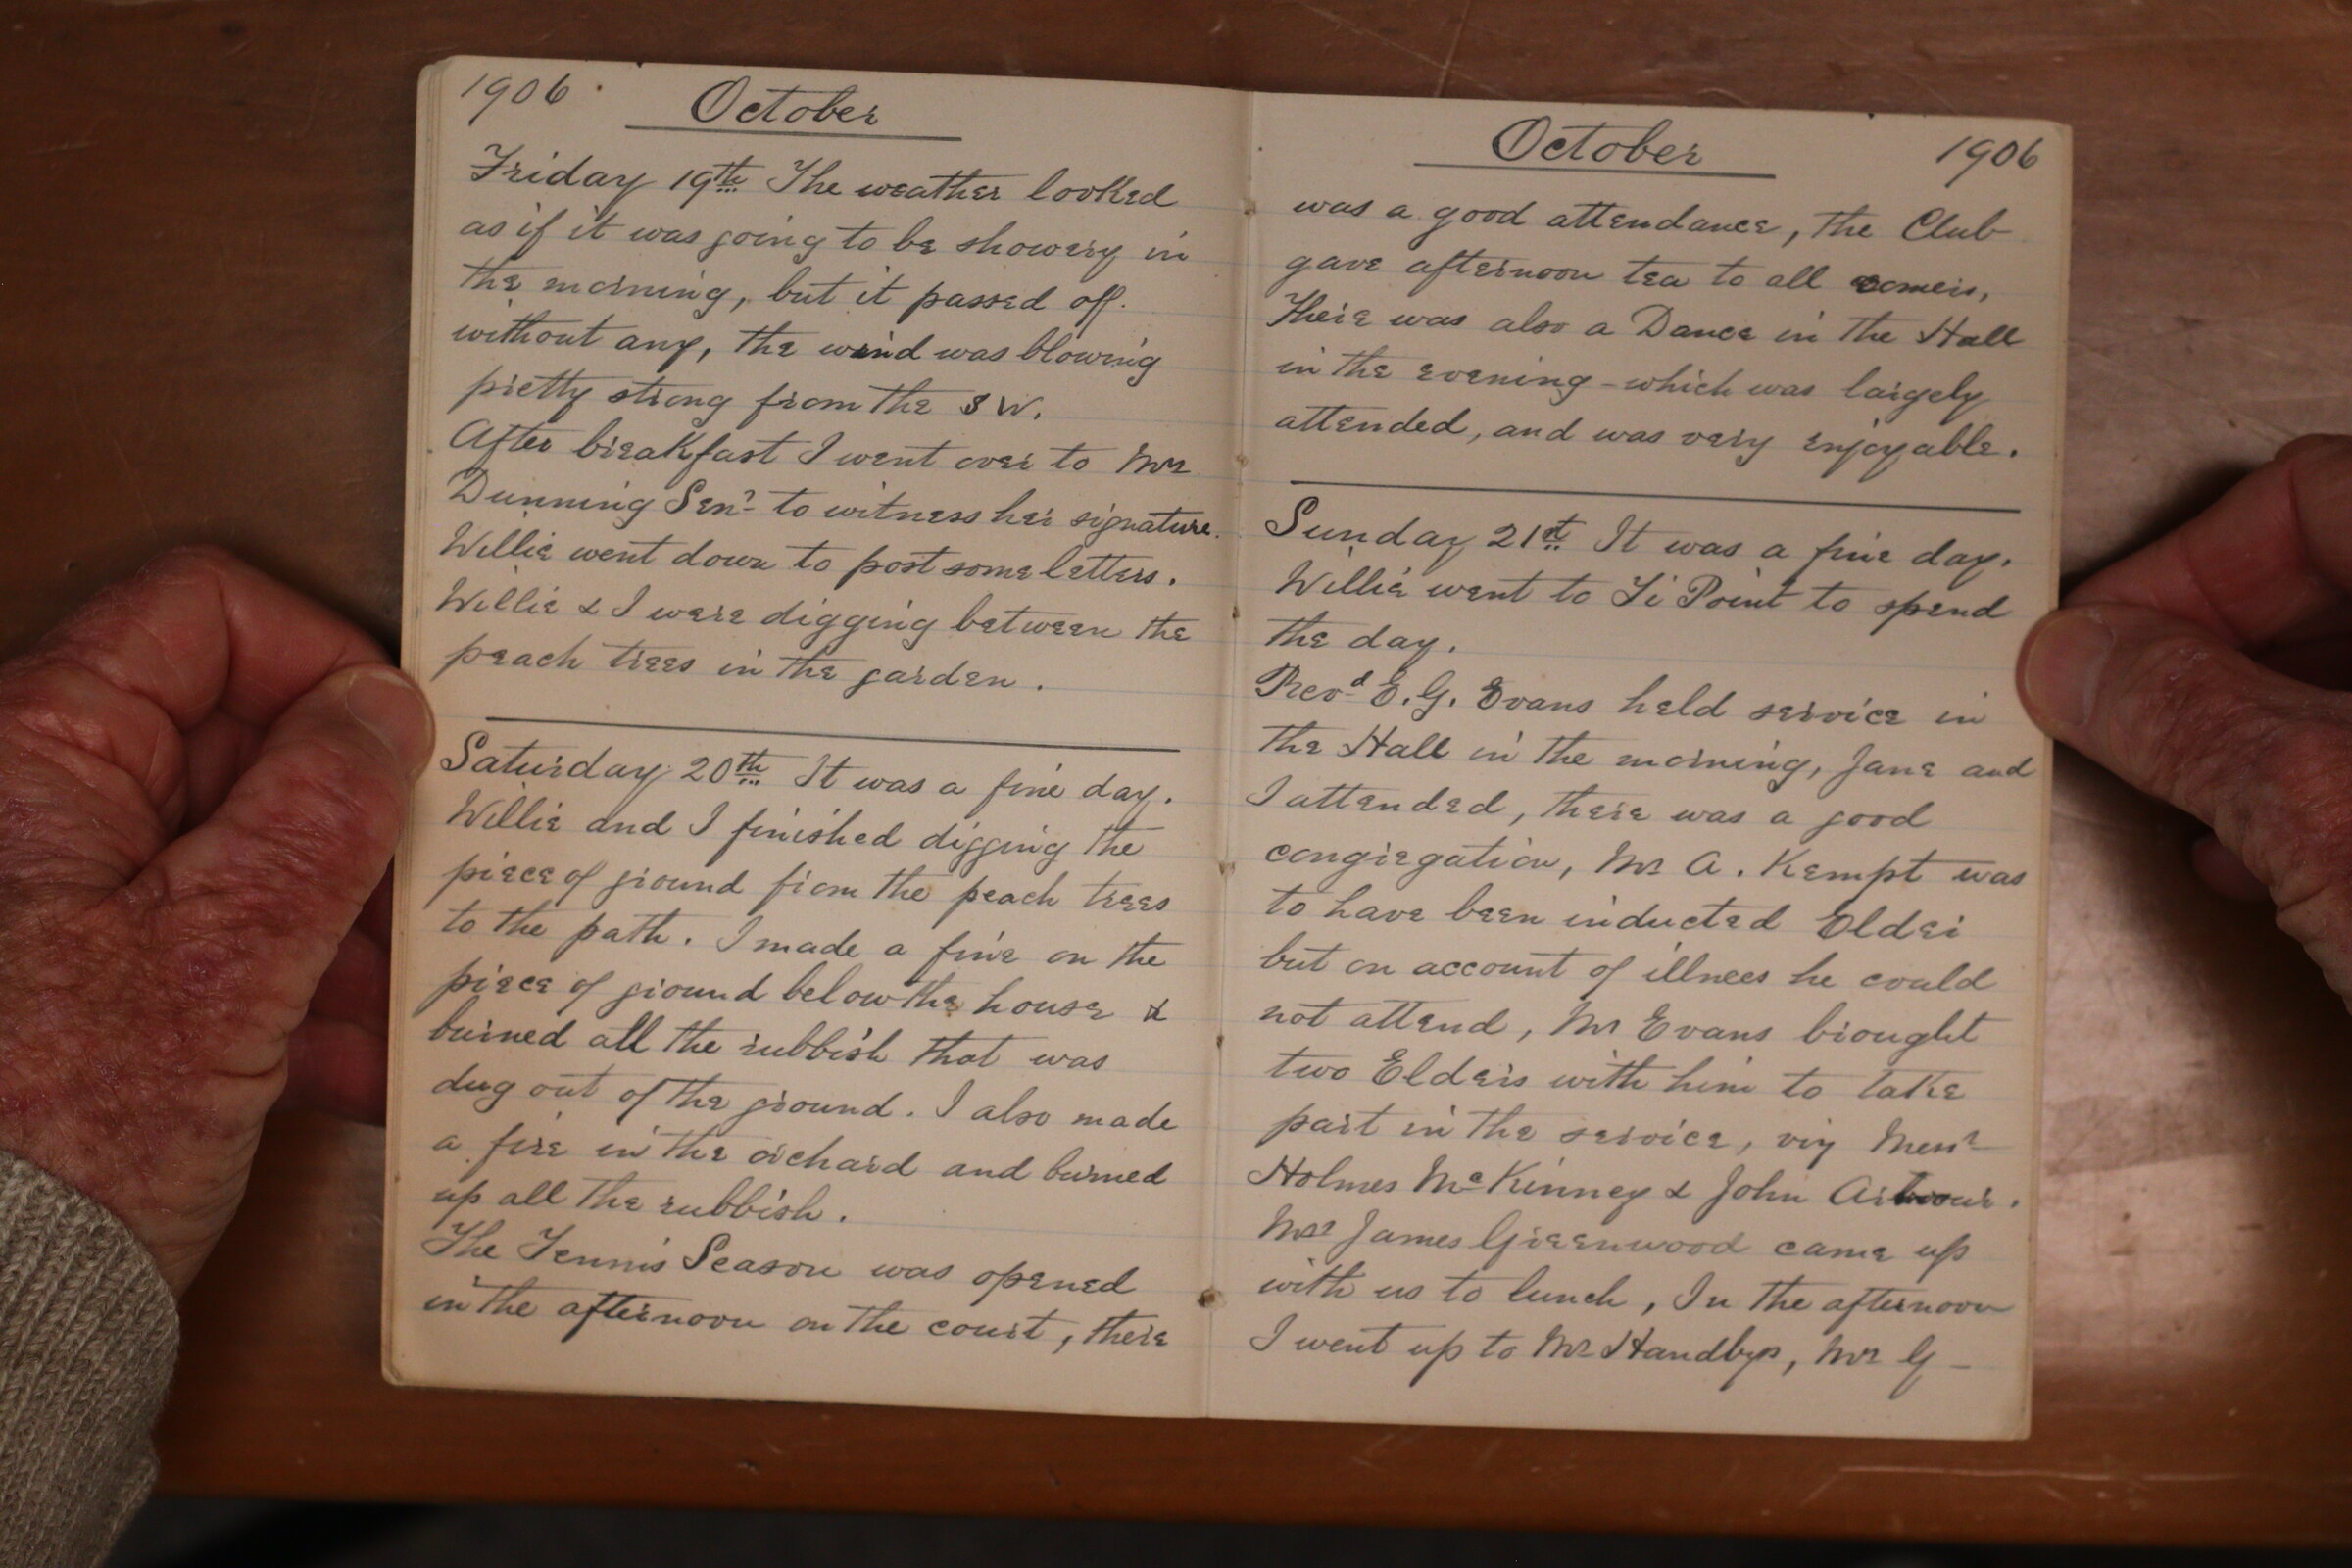 1906 October
Friday 19th The weather looked
as if it was going to be showery in
the morning, but it passed off.
without any, the wind was blowing
pretty strong from the S W.
After breakfast I went over to Mrs
Dunning Senr to witness her signature.
Willie went down to post some letters.
Willie & I were digging between the
peach trees in the garden.
Saturday 20th It was a fine day.
Willie and I finished digging the
piece of ground from the peach trees
to the path. I made a fire on the
piece of ground below the house &
burned all the rubbish that was
dug out of the ground. I also made
a fire in the orchard and burned
up all the rubbish.
The Tennis Season was opened
in the afternoon on the court, there
October 1906
was a good attendance, the Club
gave afternoon tea to all comers,
There was also a Dance in the Hall
in the evening - which was largely
attended, and was very enjoyable.
Sunday 21st It was a fine day.
Willie went to Ti Point to spend
the day.
Revd E. G. Evans held service in
the Hall in the morning, Jane and
I attended, there was a good
congregation, Mr A. Kempt was
to have been inducted Elder
but on account of illnees he could
not attend, Mr Evans brought
two Elders with him to take
part in the service, viz Messrs
Holmes McKinney & John
Mrs James Greenwood came up
with us to lunch, In the afternoon
I went up to Mr Handbys, Mr G-